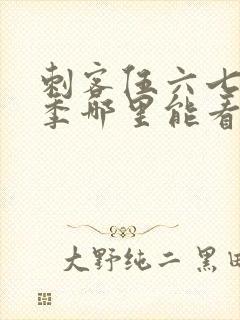 刺客伍六七
季哪里能看
大野纯二 黑田